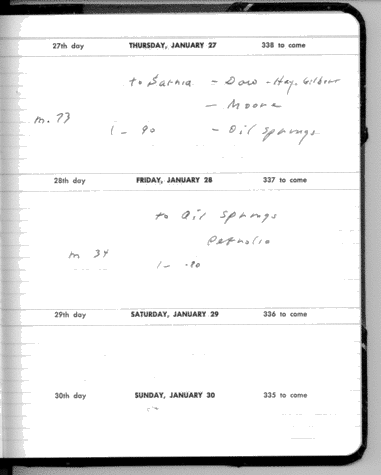 27th day THURSDAY, JANUARY 27 338 to come
to Sarnia - Dow - Hay. Gilbour
- Moore
m. 73
1 - 90 - Oil Springs
28th day FRIDAY, JANUARY 28 337 to come
to Oil Springs
Petrolia
m 34
1 - .80
29th day SATURDAY, JANUARY 29 336 to come
30th day SUNDAY, JANUARY 30 335 to come